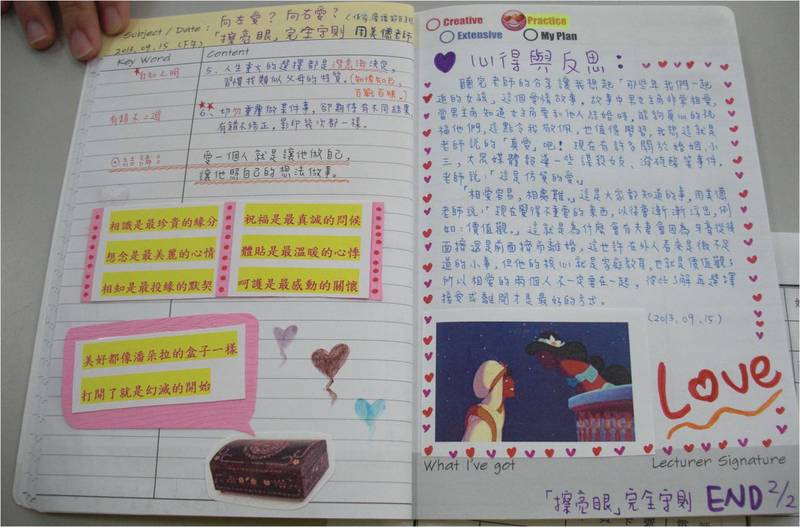 Subject / Date :
向左愛? 向右愛?
2013.09.15 (下午)
「擦亮眼」完全守則
Key Word
Content
5、人生重大的選擇都是潛意識決定,
習慣找類似父母的特質。(知情知己,
百戰百勝。)
有錯不二過
6、切勿重覆做某件事,卻期待有不同結果,
有錯不修正,
愛一個人就是讓他做自己,
讓他照自己的想法做事。
相識是最珍貴的緣分
想念是最美麗的心情
相知是最投緣的默契
祝福是最真誠的問候
體貼是最溫暖的心悸
呵護是最感動的關懷
美好都像潘朵拉的盒子一樣
打開了就是幻滅的開始
Creative
Practice
Extensive
My Plan
心得與反思:
聽完老師的分享讓我想起「那些年我們一起
追的女孩」這個愛情故事,故事中男女主角非常相愛,
當男主角知道女主角要和他人結婚時,能夠真心的祝
福他們,這點令我敬佩,也值得學習,我想這就是
老師說的「真愛」吧! 現在有許多關於婚姻、小
三,大眾媒體報導一些謀殺女友、潑硫酸等事件,
老師說:「這是仿質的愛。」
「相愛容易,相處難。」這是大家都知道的事,
老師說:「現在覺得不重要的東西,以後會漸漸浮出,例
如:價值觀。」這就是為什麼會有夫妻會因為牙膏從後
面擠還是前面擠而離婚,這也許在外人看來是微不足
道的小事,但他的核心就是家庭教育,也就是價值觀,
所以相愛的兩個人不一定要在一起,彼此了解再選擇
接受或離開才是最好的方式。
(2013.09.15)
Love
What I've got
Lecturer Signature
「擦亮眼」完全守則 END 2/2